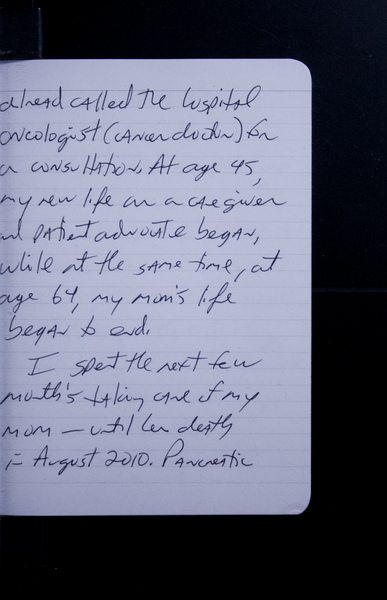 ahead called the hospital
oncologist (cancer doctor) for
a consultation. At age 45,
my new life as a caregiver
and patient advocate began,
while at the same time, at
age 64, my mom's life
began to end.
I spent the next few
month's taking care of my
mom — until her death
in August 2010. Pancreatic